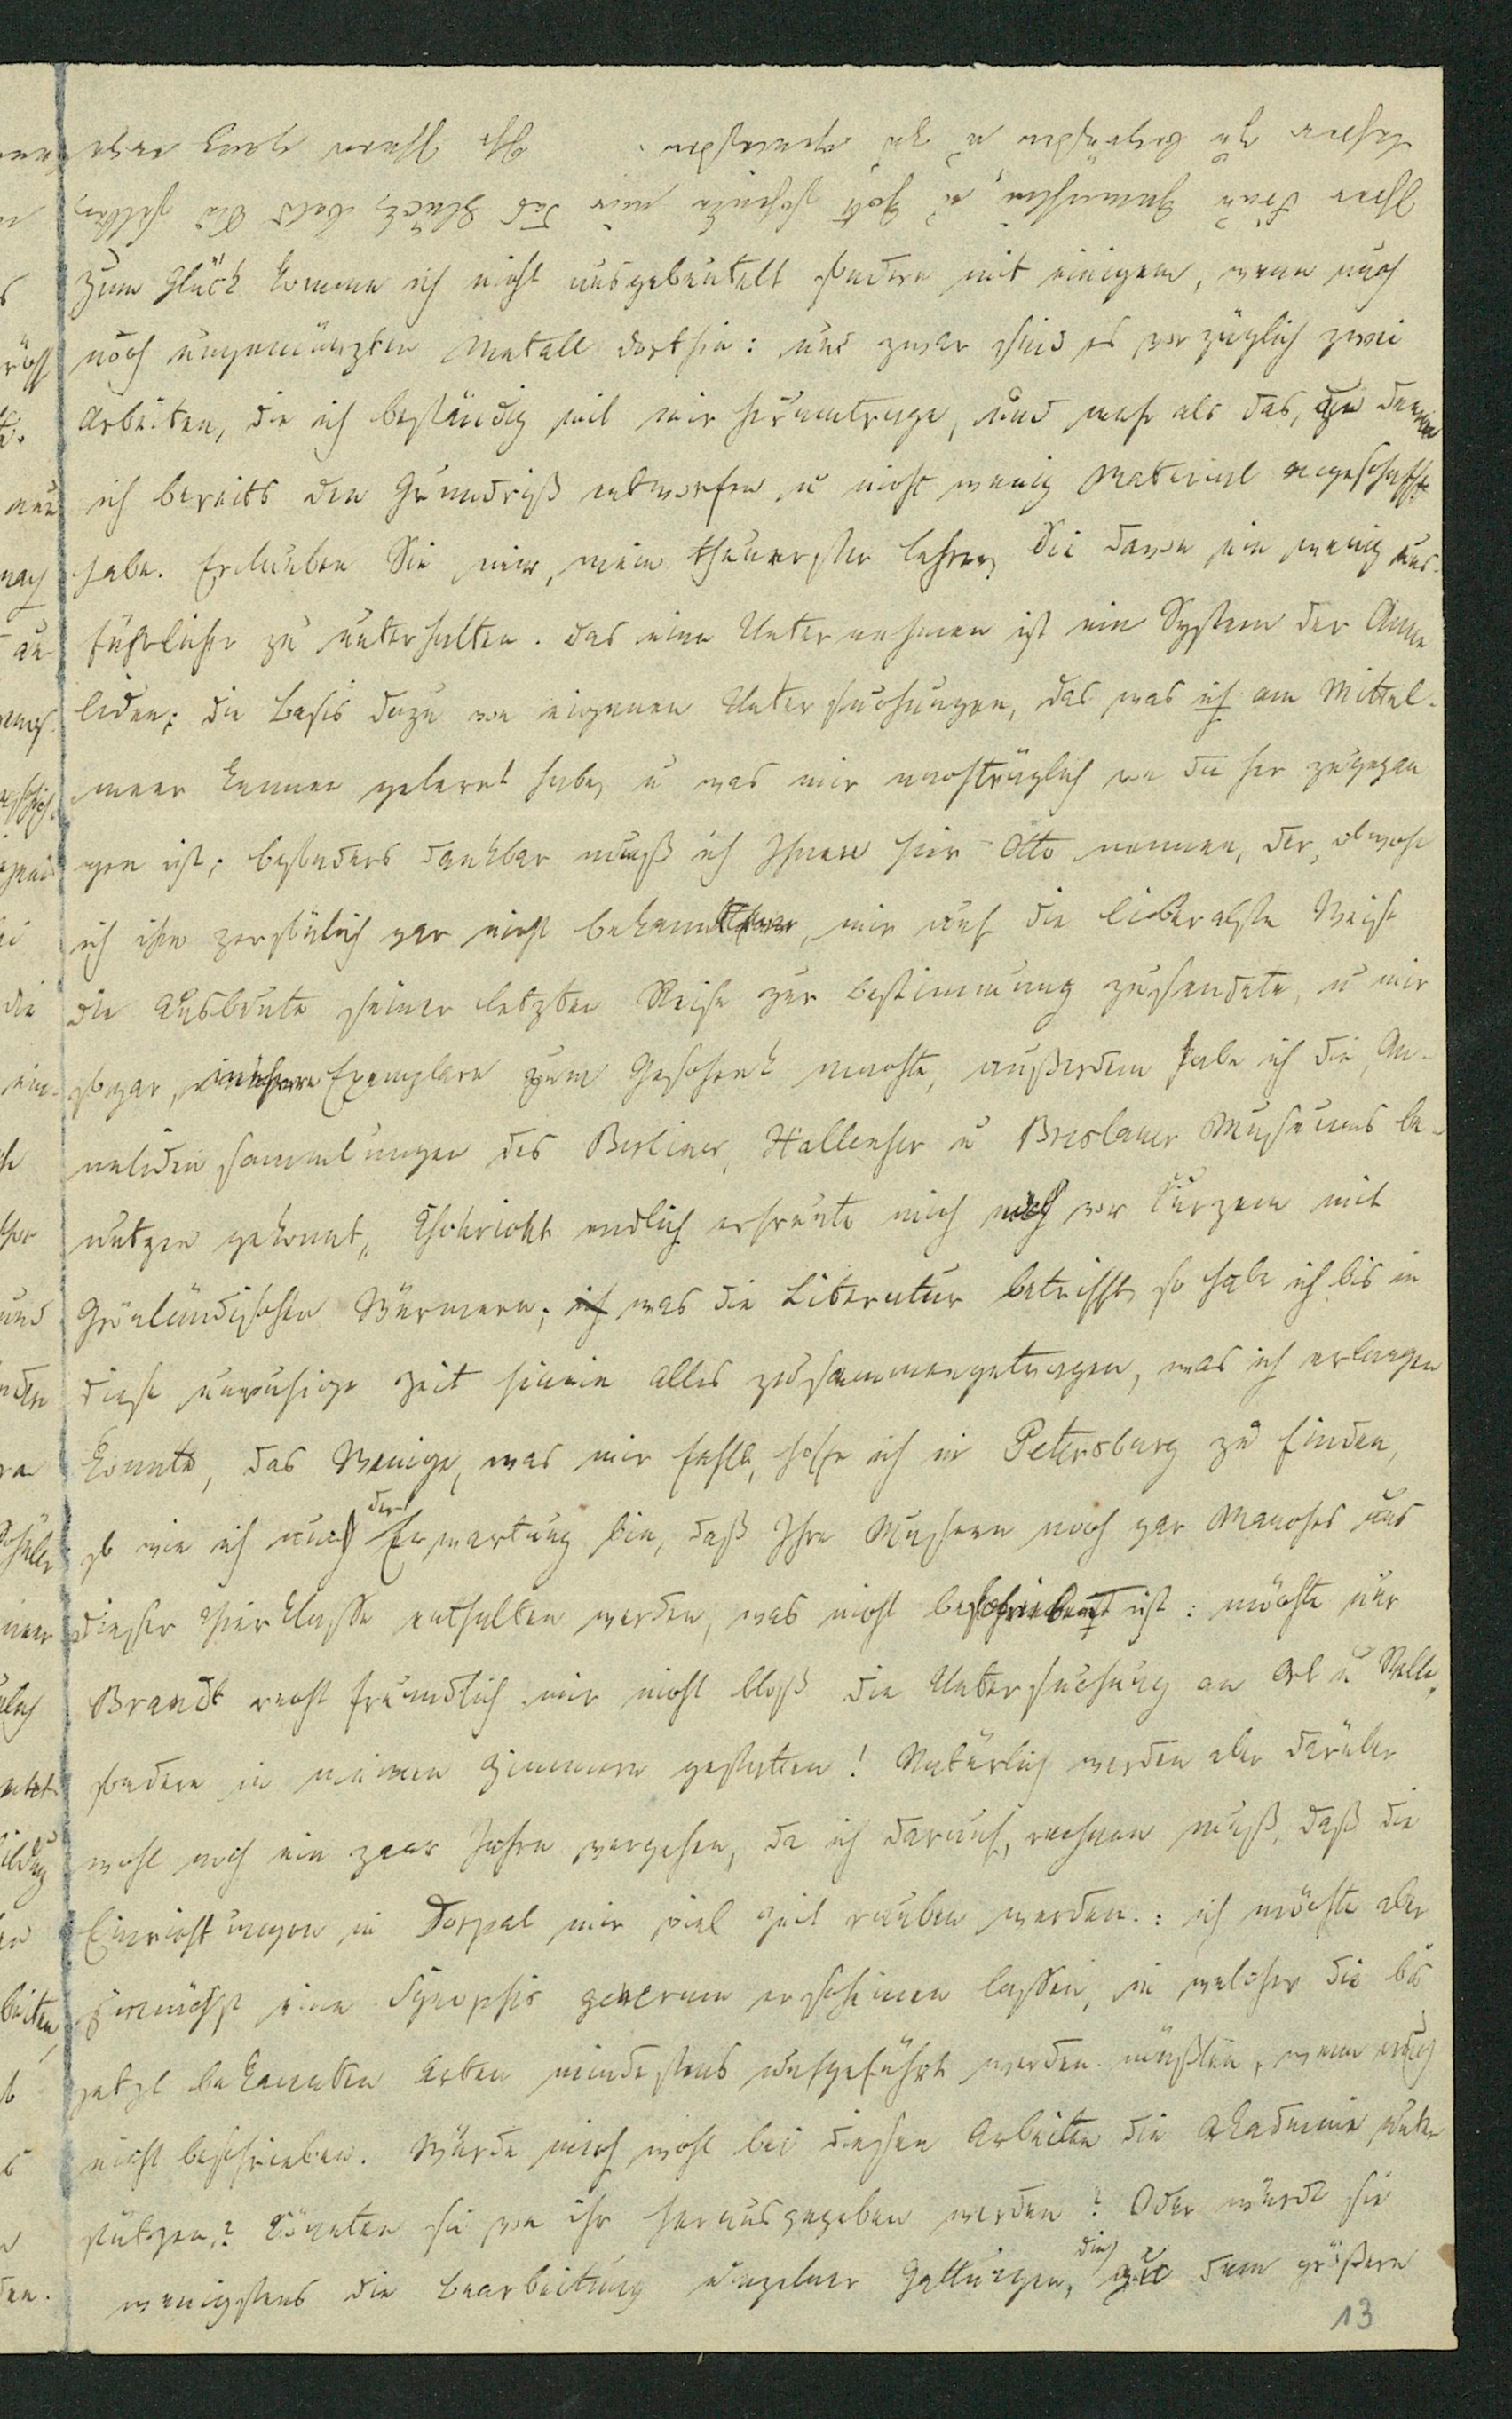 Zum Glück komme ich nicht ausgebeutelt sondern mit einigem, wenn auch
noch ungemünzten Metall dorthin: und zwar sind es vorzüglich zwei
Arbeiten, die ich beständig mit mir herumtrage, und mehr als das, zu denen
ich bereits den Grundriß entworfen u nicht wenig Material angeschafft
habe. Erlauben Sie mir, mein theuerster Lehrer, Sie davon ein wenig aus-
führlicher zu unterhalten. Das eine Unternehmen ist ein System der Anne
liden; die Basis dazu von eigenen Untersuchungen, das was ich am Mittel-
meer kennen gelernt habe, u was mir nachträglich von da her zugegan
gen ist; besonders dankbar muß ich Ihnen hier Otto nennen, der, obwohl
ich ihm persönlich gar nicht bekannt war, mir auf die liberalste Weise
die Ausbeute seiner letzten Reise zur Bestimmung zusendete, u mir
sogar, mehrere Exemplare zum Geschenk machte, außerdem habe ich die An-
nelidensammlungen des Berliner, Hallenser u Breslauer Museums be-
nutzen gekonnt, Eschricht endlich erfreute mich noch vor Kurzem mit
Grönländischen Würmern; was die Literatur betrifft, so habe ich bis in
diese unruhige Zeit hinein alles zusammengetragen, was ich erlangen
konnte, das Wenige, was mir fehlt, hoffe ich in Petersburg zu finden,
so wie ich auch der Erwartung bin, daß Ihre Museen noch gar Manches aus
dieser Thierklasse enthalten werden, was nicht beschrieben ist: möchte nur
Brandt recht freundlich mir nicht bloß die Untersuchung an Ort u Stelle,
sondern in meinen Zimmern gestatten! Natürlich werden aber darüber
wohl noch ein paar Jahre vergehen, da ich darauf, rechnen muß, daß die
Einrichtungen in Dorpat mir viel Zeit rauben werden.: ich möchte aber
zunächst eine Synopsis generum erscheinen lassen, in welcher die bis
jetzt bekannten Arten mindestens aufgeführt werden müßten, wenn auch
nicht beschrieben. Würde mich wohl bei diesen Arbeiten die Akademie unter
stützen? Könnten sie von ihr herausgegeben werden? Oder würde sie
wenigstens die Bearbeitung einzelner Gattungen, die zu dem größern
13